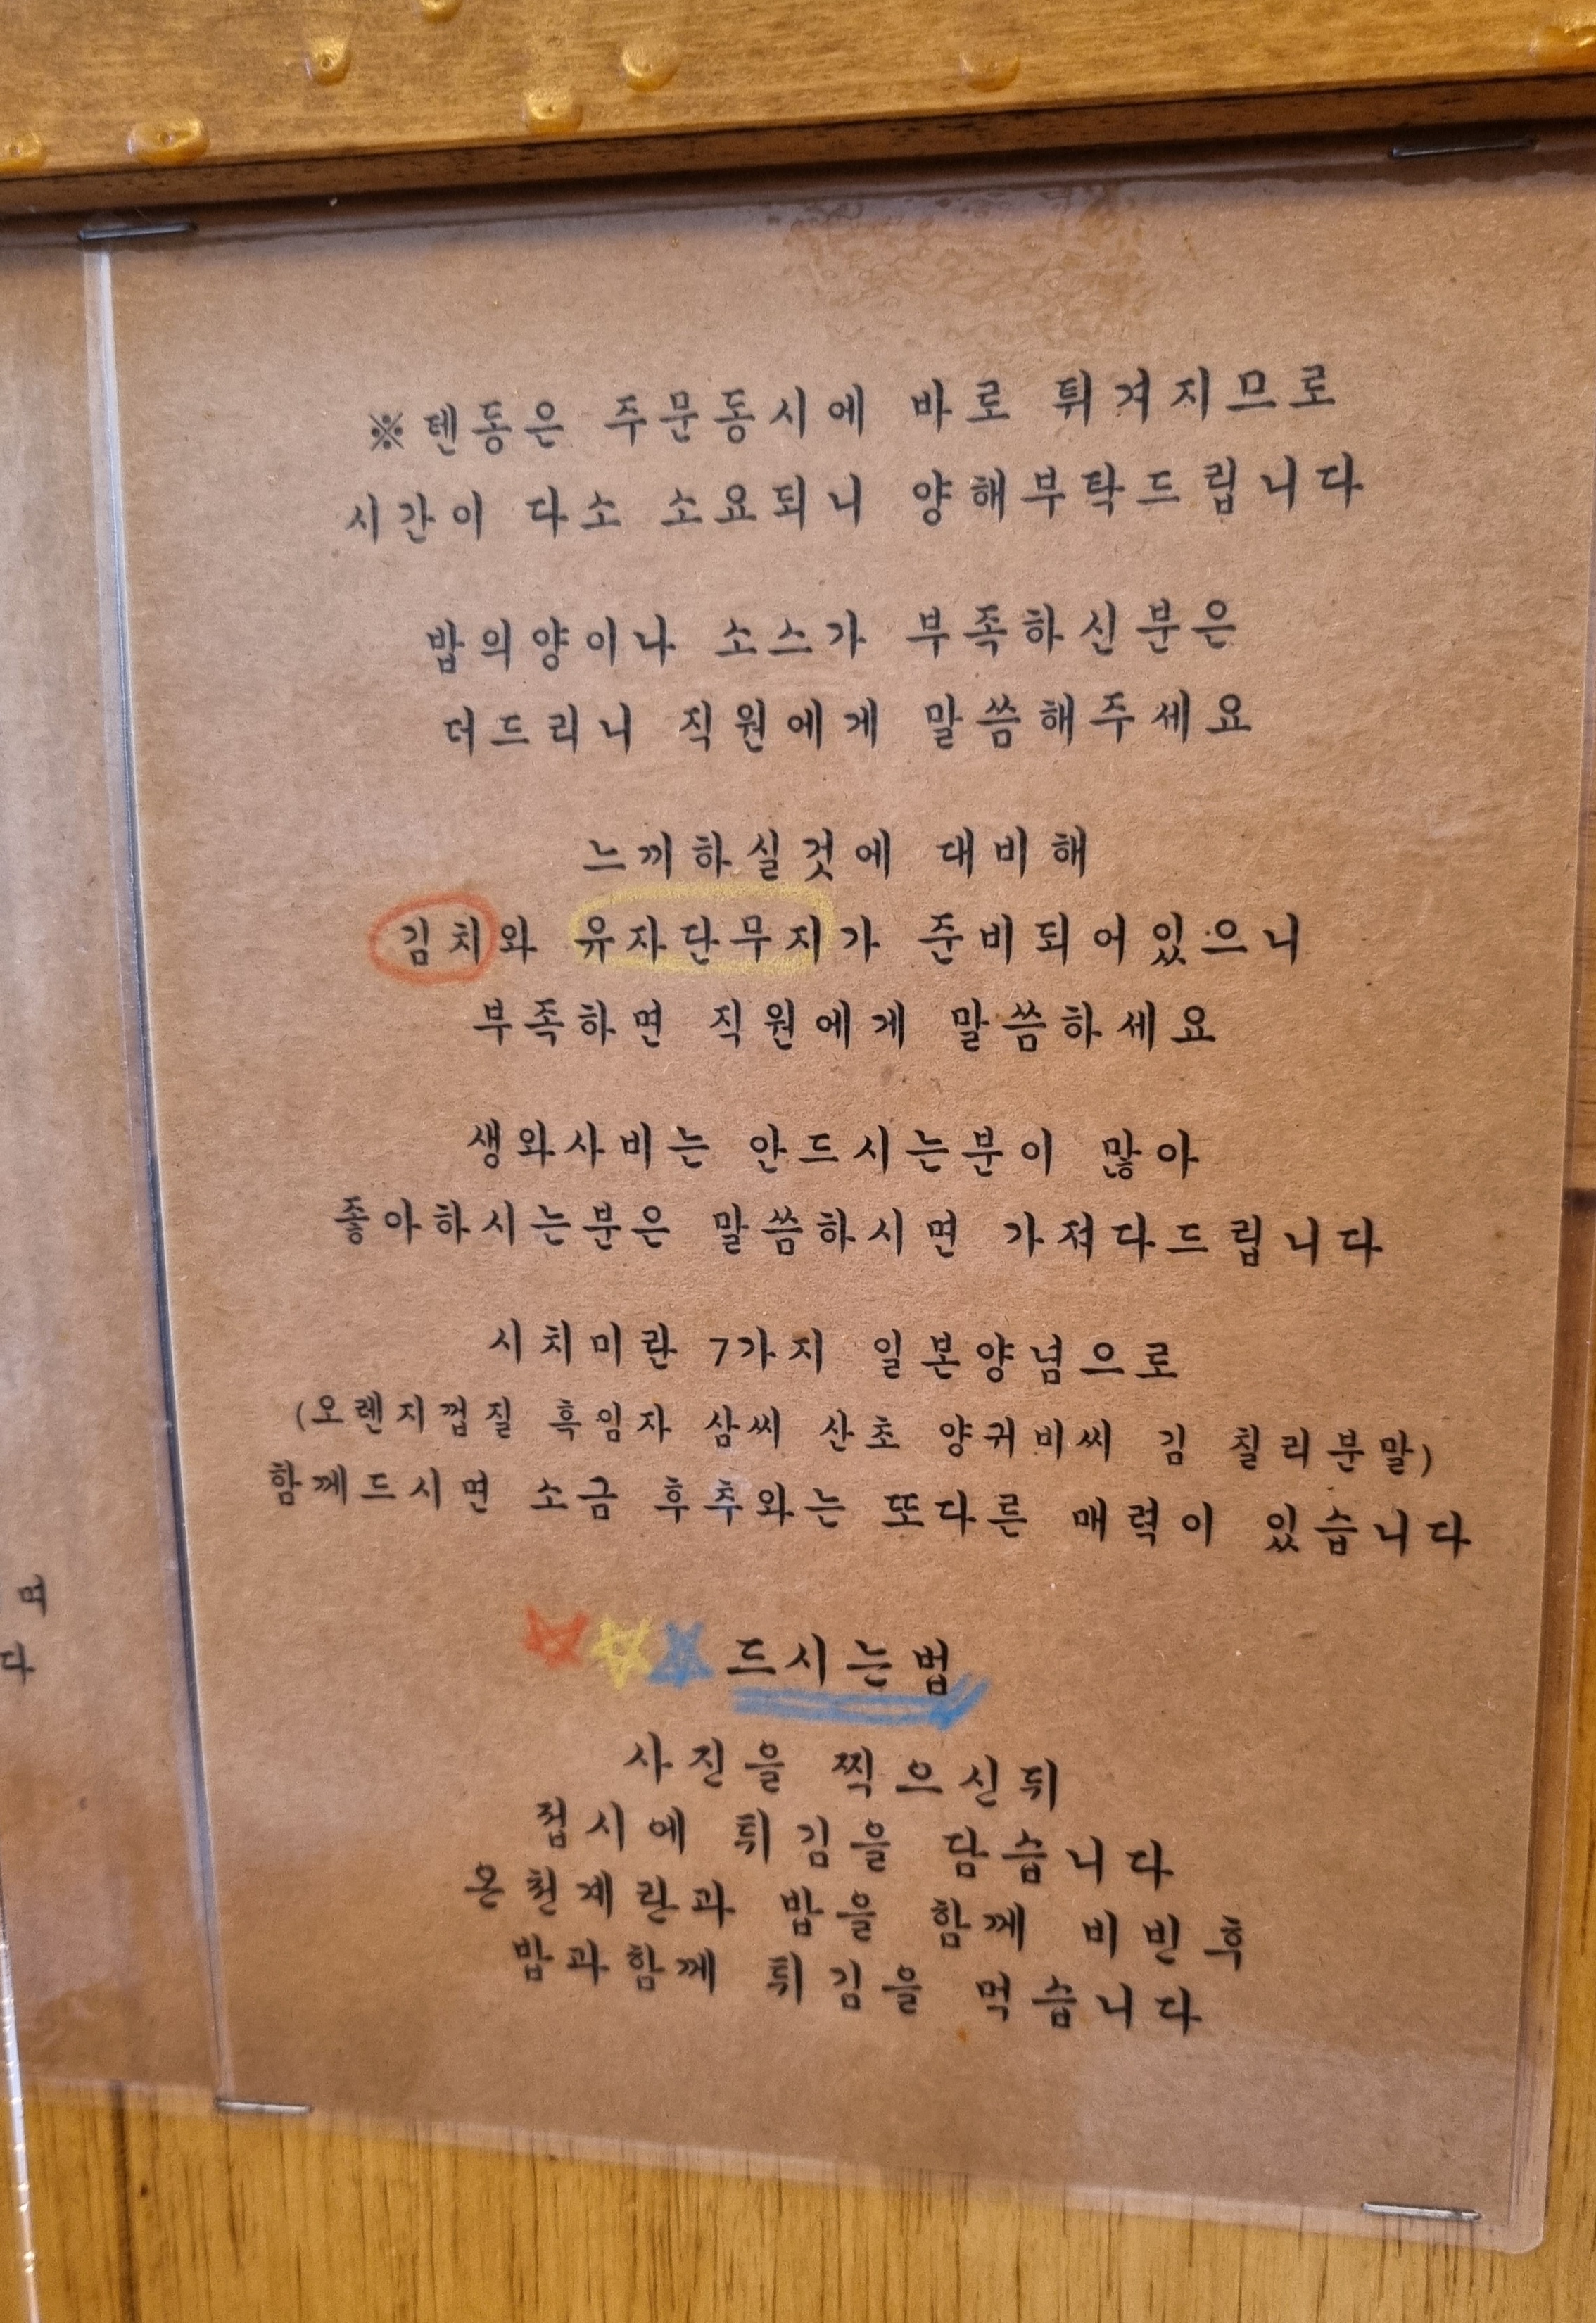 ※텐동은 주문동시에 바로 튀겨지므로
시간이 다소 소요되니 양해부탁드립니다
밥의양이나 소스가 부족하신분은
더드리니 직원에게 말씀해주세요
느끼하실것에 대비해
김치와 유자단무지가 준비되어있으니
부족하면 직원에게 말씀하세요
생와사비는 안드시는분이 많아
좋아하시는분은 말씀하시면 가져다드립니다
시치미란 7가지 일본양념으로
(오렌지껍질 흑임자 삼씨 산초 양귀비씨 김 칠리분말)
함께드시면 소금 후추와는 또다른 매력이 있습니다
드시는법
사진을 찍으신뒤
접시에 튀김을 담습니다
온천계란과 밥을 함께 비빈후
밥과함께 튀김을 먹습니다
먹
다